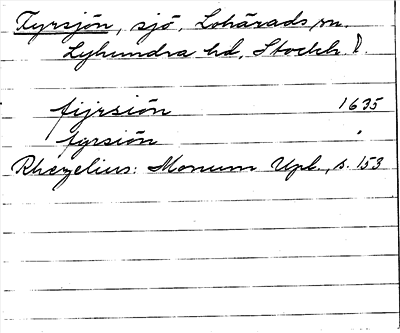 Fyrsjön, sjö, Lohärads sn.
Lyhundra hd, Stockh l.
fijrsiön 1635
fyrsiön "
Rhezelius: Monum Upl., s. 153